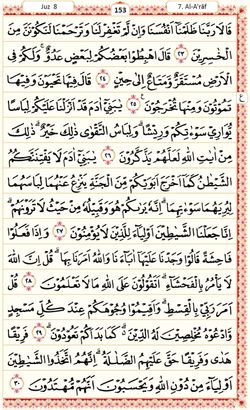 Juz 8
153
7. Al-A'râf
قَالَا رَبَّنَا ظَلَمْنَآ اَنْفُسَنَا وَاِنْ لَّمْ تَغْفِرْ لَنَا وَتَرْحَمْنَا لَنَكُوْنَنَّ مِنَ
الْخٰسِرِيْنَ ۲۳ قَالَ اهْبِطُوْا بَعْضُكُمْ لِبَعْضٍ عَدُوٌّ ۚ وَلَكُمْ فِي
الْاَرْضِ مُسْتَقَرٌّ وَّمَتَاعٌ اِلٰى حِيْنٍ ۲۴ قَالَ فِيْهَا تَحْيَوْنَ وَفِيْهَا
تَمُوْتُوْنَ وَمِنْهَا تُخْرَجُوْنَ ۲۵ يٰبَنِيْٓ اٰدَمَ قَدْ اَنْزَلْنَا عَلَيْكُمْ لِبَاسًا
يُّوَارِيْ سَوْاٰتِكُمْ وَرِيْشًا ۗ وَلِبَاسُ التَّقْوٰى ذٰلِكَ خَيْرٌ ۗ ذٰلِكَ
مِنْ اٰيٰتِ اللّٰهِ لَعَلَّهُمْ يَذَّكَّرُوْنَ ۲۶ يٰبَنِيْٓ اٰدَمَ لَا يَفْتِنَنَّكُمُ
الشَّيْطٰنُ كَمَآ اَخْرَجَ اَبَوَيْكُمْ مِّنَ الْجَنَّةِ يَنْزِعُ عَنْهُمَا لِبَاسَهُمَا
لِيُرِيَهُمَا سَوْاٰتِهِمَا ۗ اِنَّهٗ يَرٰىكُمْ هُوَ وَقَبِيْلُهٗ مِنْ حَيْثُ لَا تَرَوْنَهُمْ ۗ
اِنَّا جَعَلْنَا الشَّيٰطِيْنَ اَوْلِيَآءَ لِلَّذِيْنَ لَا يُؤْمِنُوْنَ ۲۷ وَاِذَا فَعَلُوْا
فَاحِشَةً قَالُوْا وَجَدْنَا عَلَيْهَآ اٰبَآءَنَا وَاللّٰهُ اَمَرَنَا بِهَا ۗ قُلْ اِنَّ اللّٰهَ
لَا يَأْمُرُ بِالْفَحْشَآءِ ۗ اَتَقُوْلُوْنَ عَلَى اللّٰهِ مَا لَا تَعْلَمُوْنَ ۲۸ قُلْ
اَمَرَ رَبِّيْ بِالْقِسْطِ ۗ وَاَقِيْمُوْا وُجُوْهَكُمْ عِنْدَ كُلِّ مَسْجِدٍ
وَّادْعُوْهُ مُخْلِصِيْنَ لَهُ الدِّيْنَ ۗ كَمَا بَدَاَكُمْ تَعُوْدُوْنَ ۲۹ فَرِيْقًا
هَدٰى وَفَرِيْقًا حَقَّ عَلَيْهِمُ الضَّلٰلَةُ ۗ اِنَّهُمُ اتَّخَذُوا الشَّيٰطِيْنَ
اَوْلِيَآءَ مِنْ دُوْنِ اللّٰهِ وَيَحْسَبُوْنَ اَنَّهُمْ مُّهْتَدُوْنَ ۳۰